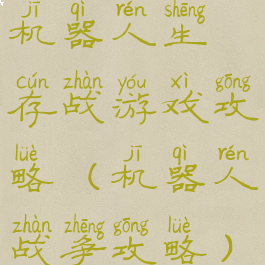 jī qì rén shēng
机器人生
cún zhàn yóu xì gōng
存战游戏攻
lüè jī qì rén
略（机器人
zhàn zhēng gōng lüè
战争攻略）